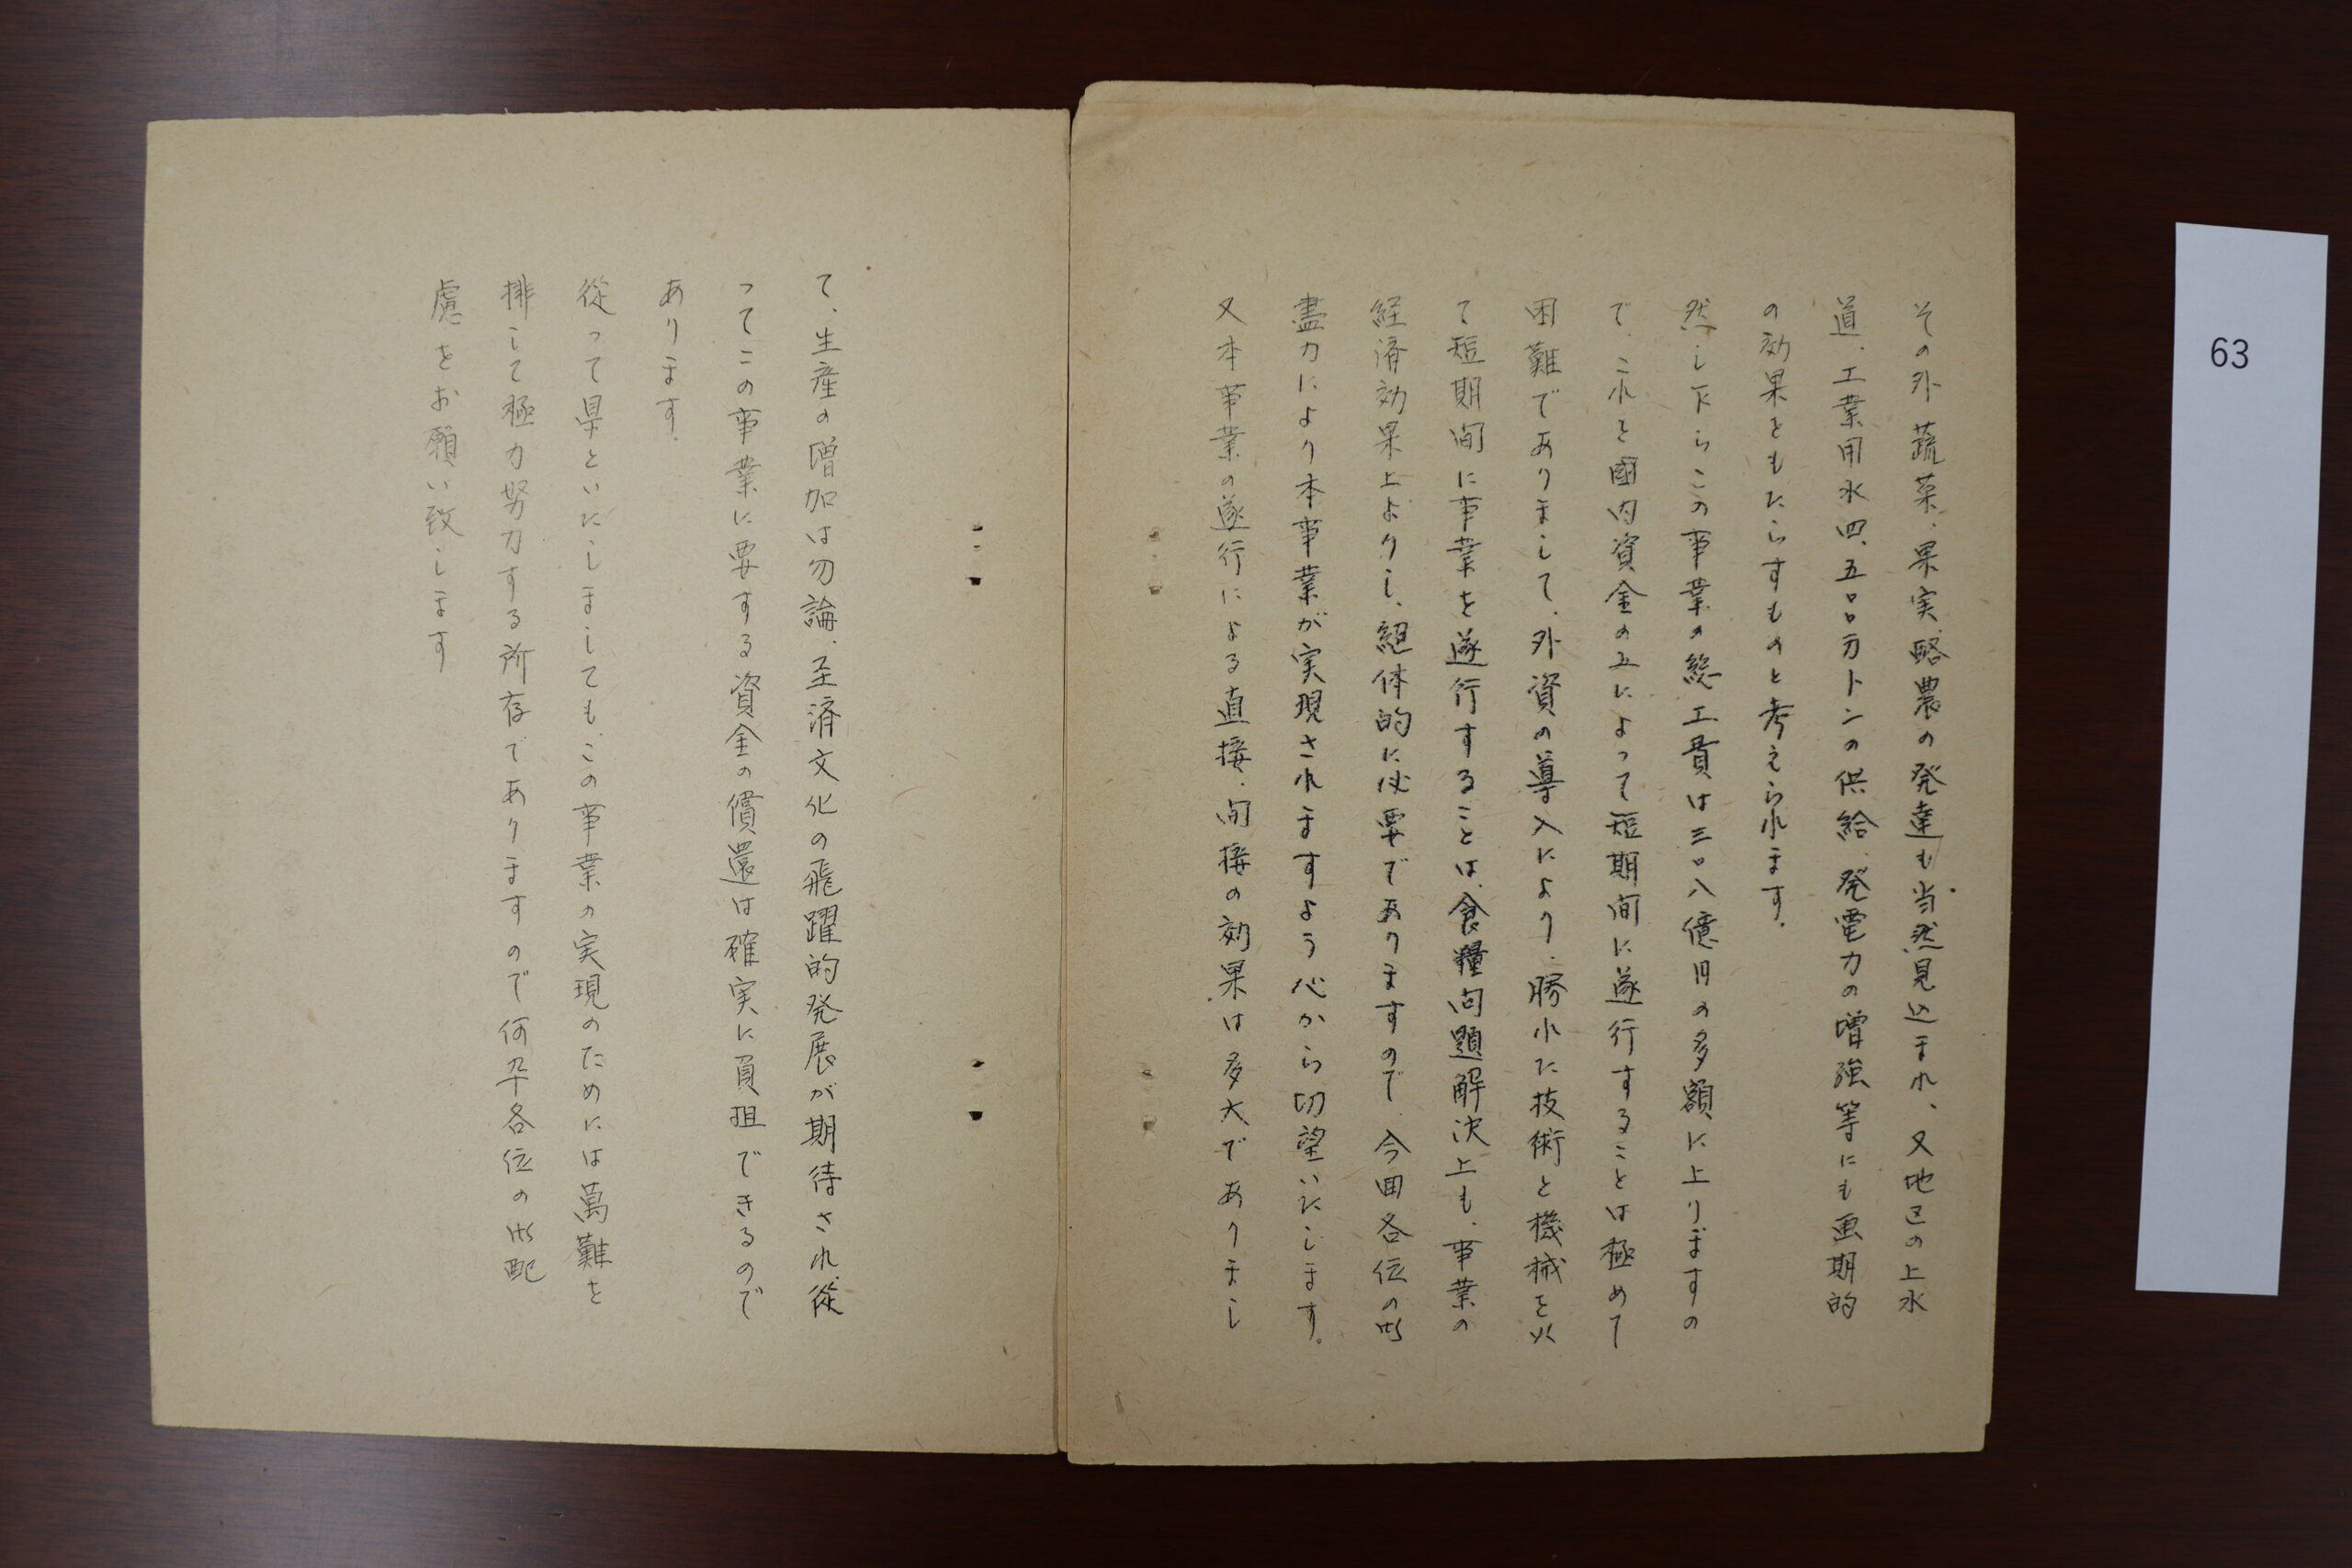 その外蔬菜、果実、酪農の発達も当然見込まれ、又地区の上水
道、工業用水四、五〇〇万トンの供給、発電力の増強等にも画期的
の効果をもたらすものと考えられます。
然し乍らこの事業の総工費は三〇八億円の多額に上りますの
で、これを國内資金のみによって短期间に遂行することは極めて
困難でありまして、外資の導入により、勝れた技術と機械を以
て短期间に事業を遂行することは、食糧问題解決上も、事業の
経済効果上よりし、絶体的に必要でありますので、今回各位の御
盡力により本事業が実現されますよう心から切望いたします。
又本事業の遂行による直接、间接の効果は多大でありまし
て、生産の増加は勿論、至済文化の飛躍的発展が期待され、従
ってこの事業に要する資金の償還は確実に負担できるので
あります。
従って県といたしましても、この事業の実現のためには萬難を
排して極力努力する所存でありますので何卒各位の御配
慮をお願い致します
63